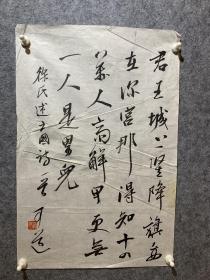 君王城上竖降旗妾
在深宫那得知十四
万人齐解甲更无
一人是男儿
徐氏述亡國诗